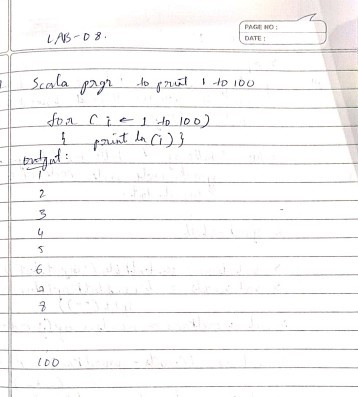 PAGE NO :
DATE :
LAB-08.
Scala prgr to print 1 to 100
for ( i ← 1 to 100)
{ print ln (i) }
output :
1
2
3
4
5
6
7
8
100